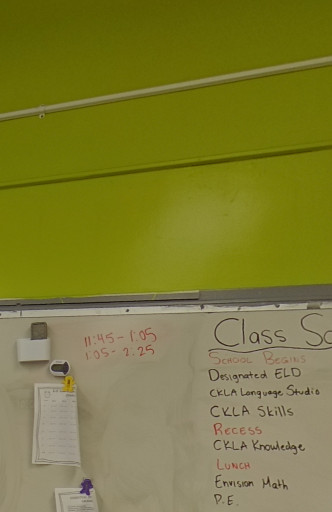 11:45 - 1:05
1:05 - 2:25
Class Sc
School Begins
Designated ELD
CKLA Language Studio
CKLA Skills
Recess
CKLA Knowledge
Lunch
Envision Math
P.E.